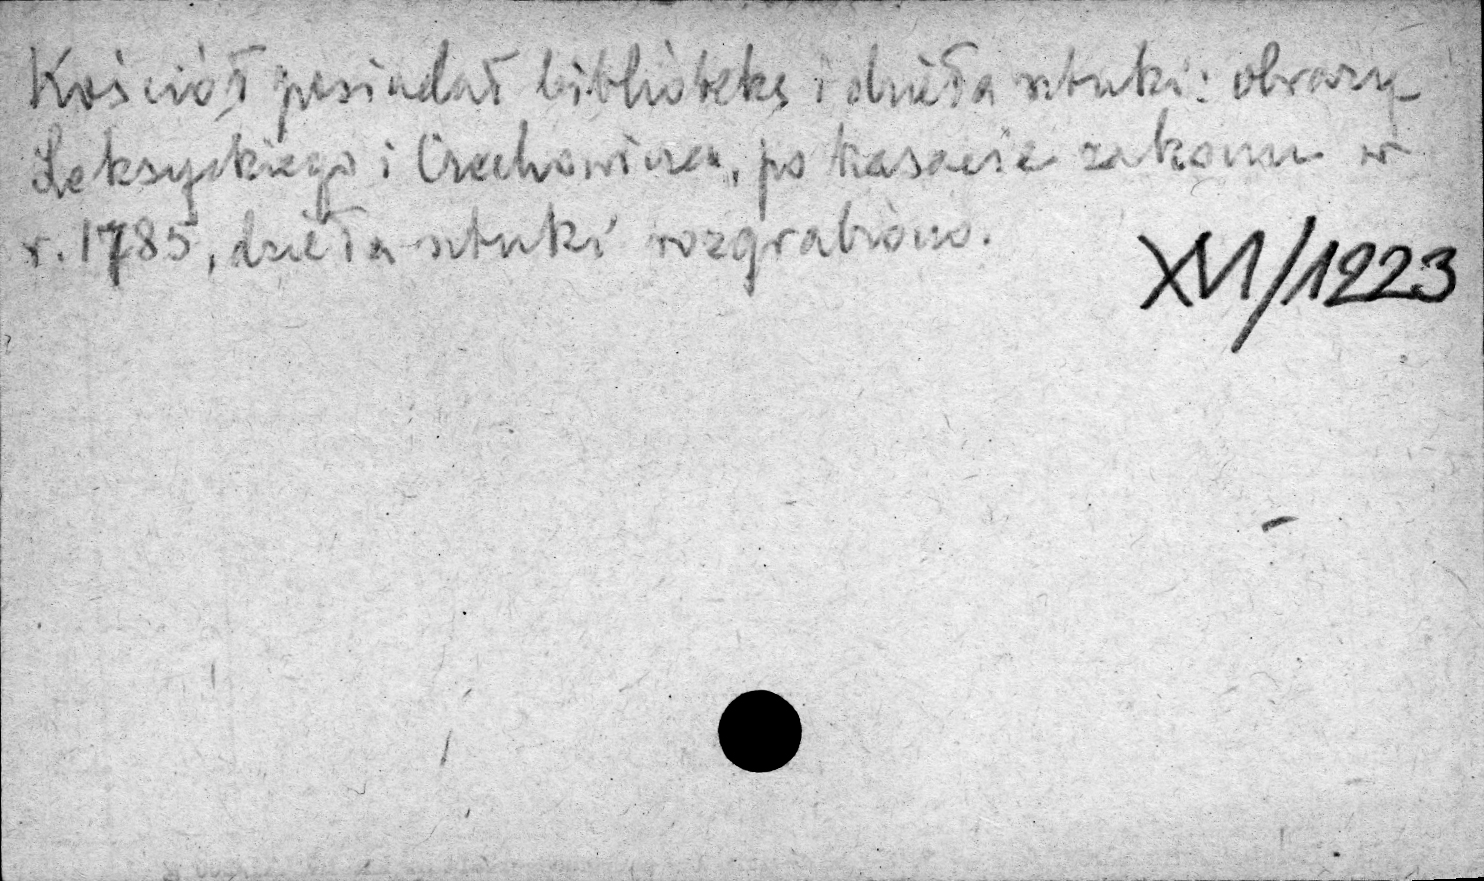 Kościół posiadał bibliotekę i dzieła sztuki: obrazy
Leksyckiego i Czechowicza, po kasacie zakonu w
r. 1785, dzieła sztuki rozgrabiono.
XVI/1223